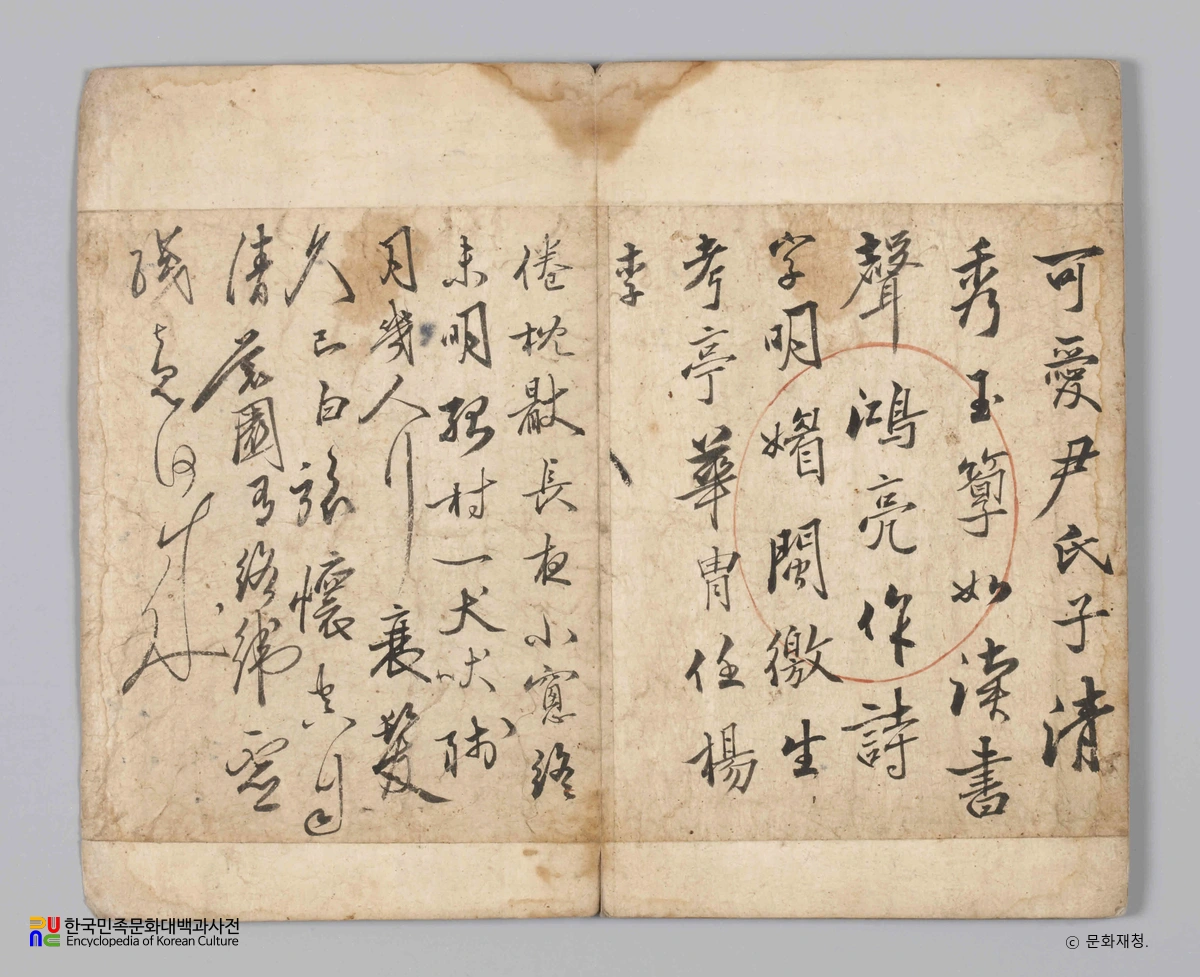 可愛尹氏子清
秀玉如讀書
聲鴻亮作詩
字明媚閩徼生
考亭華胄任楊
李
倦枕厭長夜小窓終
未明孤村一犬吠殘
月幾人行衰鬢
久已白旅懷空自
清荒園有絡緯虛
織竟何成
한국민족문화대백과사전
Encyclopedia of Korean Culture
ⓒ 문화재청.